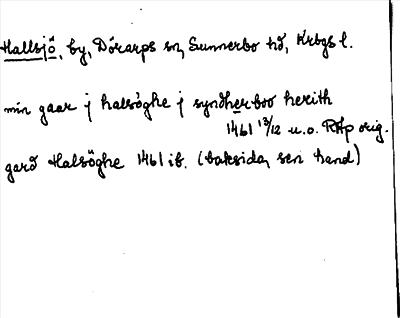 Hallsjö, by, Dörarps sn, Sunnerbo hd, Krbgs l.
min gaar j halsöghe j syndherboo herith
1461 13/12 u.o. RAp orig.
gard Halsöghe 1461 ib. (baksida, sen hand)